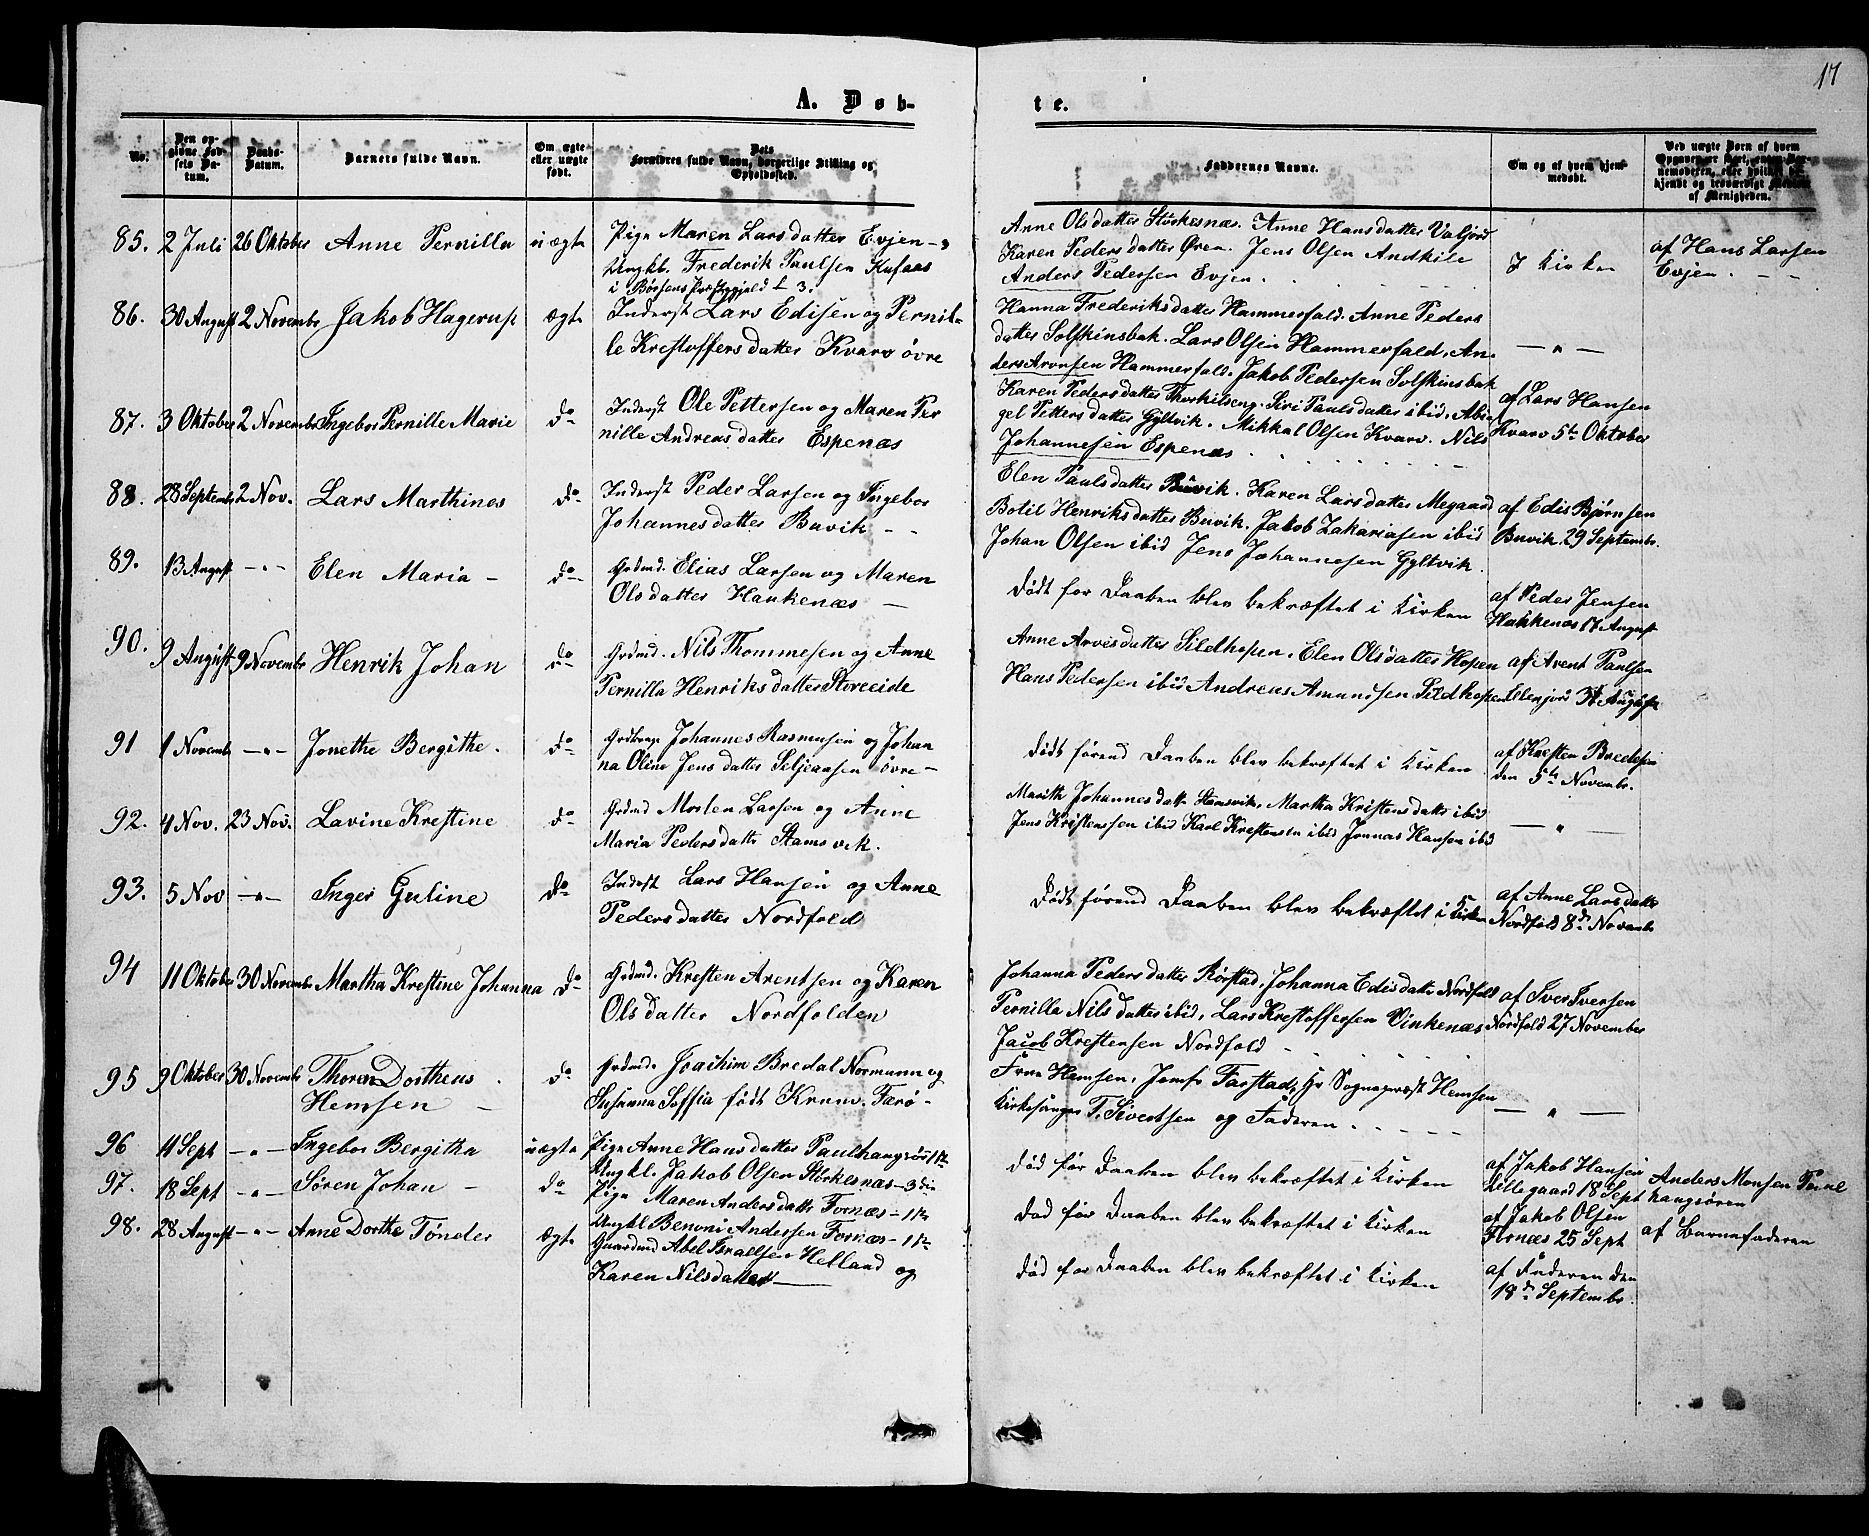 17
A. Døb-
te.
No.
Den op-
givne Fød-
sels Da-
tum.
Daabs-
Datum.
Barnets fulde Navn.
Om ægte
eller uægte
født.
Dets
Forældres fulde Navn, borgerlige Stilling og
Opholdssted.
Faddernes Navne.
Om og af hvem hjem-
medøbt.
Ved uægte Børn af hvem
Opgaven er skeet, enten Bar-
nemoderen, eller hvilket be-
kjendt og troværdigt Medlem
af Menigheden.
85. 2 Juli 26 Oktober Anne Pernilla uægte
Pige Maren Larsdatter Evjen
Ungkl. Frederik Paulsen
i Børsens Præstegjeld
Anne Olsdatter Storkesnæs. Anne Hansdatter Valjord
Karen Pedersdatter Øren. Jens Olsen Andkile
Anders Pedersen Evjen.
I Kirken
af Hans Larsen
Evjen.
86. 30 August 2 Novembr Jakob Hagerup ægte
Inderst Lars Edisen og Pernil-
le Krestoffersdatter Kvarv øvre
Hanna Frederiksdatter Hammerfald. Anne Peders
datter Solskinsbak. Lars Olsen Hammerfald, An-
ders Aronsen Hammerfald. Jakob Pedersen Solskinsbak
— " —
87. 3 Oktober 2 November Ingebor Pernille Marie do
Inderst Ole Pettersen og Maren Per
nille Andreasdatter Espenæs
Karen Pedersdatter Thorkilseng. Siri Paulsdatter ibid. Abi
gel Pettersdatter Gyltvik. Mikkal Olsen Kvarv. Nils
Johannesen Espenæs
af Lars Hansen
Kvarv 5te Oktober
88. 28 Septembr 2 Nov. Lars Marthinos do
Inderst Peder Larsen og Ingebor
Johannesdatter Buvik
Elen Paulsdatter Buvik. Karen Larsdatter Megaard
Botil Henriksdatter Buvik. Jakob Zakariasen ibid
Johan Olsen ibid Jens Johannesen Gyltvik.
af Edis Bjørnsen
Buvik 29 Septembr.
89. 13 August — " — Elen Maria do
Grdmd. Elias Larsen og Maren
Olsdatter Haukenæs
Født før Daaben blev bekræftet i Kirken
af Peder Jensen
Hakkenæs 17 August
90. 9 August 9 Novembr Henrik Johan do
Grdmd. Nils Thommesen og Anne
Pernilla Henriksdatter Storeeide
Anne Arvesdatter Sildhopen. Elen Olsdatter Hopen
Hans Pedersen ibid Andreas Amundsen Sildhopen
af Arent Paulsen
91 1 Novembr — " — Jonethe Bergithe. do
Johannes Rasmusen og Johan
na Oline Jensdatter Seljeaasen øvre
Dødt førend Daaben blev bekræftet i Kirken
af Kresten Bredesen
den 5te Novembr.
92. 4 Nov. 23 Nov. Lavine Krestine do
Grdmd Morten Larsen og Anne
Maria Pedersdattr Stamsvik.
Marith Johannesdattr Stamsvik. Martha Kristensdattr ibid
Jens Kristenssen ibid Karl Krestensen ibid Jonnas Hansen ibid
— " —
93. 5 Nov — " — Inger Guline do
Inderst Lars Hansen og Anne
Pedersdatter Nordfold
Dødt førend Daaben blev bekræftet i Kirken
af Anne Larsdattr
Nordfold 8de Novembr
94 11 Oktober 30 Novembr Martha Krestine Johanna do
Grdmd. Kresten Arentsen og Karen
Olsdatter Nordfolden
Johanna Pedersdatter Rørstad, Johanna Edisdattr Nordfold
Pernilla Nilsdatter ibid, Lars Krestoffersen Vinkenæs
Jacob Krestensen Nordfold
af Iver Iversen
Nordfold 27 November
95 9 Oktober 30 Novembr Thoren Dortheus
Hemsen do
Grdmd. Joachim Bredal Normann og
Susanna Soffia født Krum. Færø
Frue Hemsen, Jomfr Farstad, Hr Sognepræst Hemsen
Kirkesanger T. Sivertsen og Faderen
— " —
96 11 Sept — " — Ingebor Bergitha uægte
Pige Anne Hansdatter
Ungkl. Jakob Olsen Storkesnæs — 3die
Død før Daaben blev bekræftet i Kirken
af Jakob Hansen
Lillegaard 18 Sept
Anders Monsen
97. 18 Sept — " — Søren Johan do
Pige Maren Andersdattr Fornæs — 1te
Ungkl Benoni Andersen Fornæs — 1te
Død før Daaben blev bekræftet i Kirken
af Jakob Olsen
Fornæs 25 Sept
af Barnefaderen
98. 28 August — " — Anne Dorthe Tønder ægte
Gaardmd Abel Israelsen Helland og
Karen Nilsdatter
Død før Daaben blev bekræftet i Kirken
af Faderen den
18de Septembr.